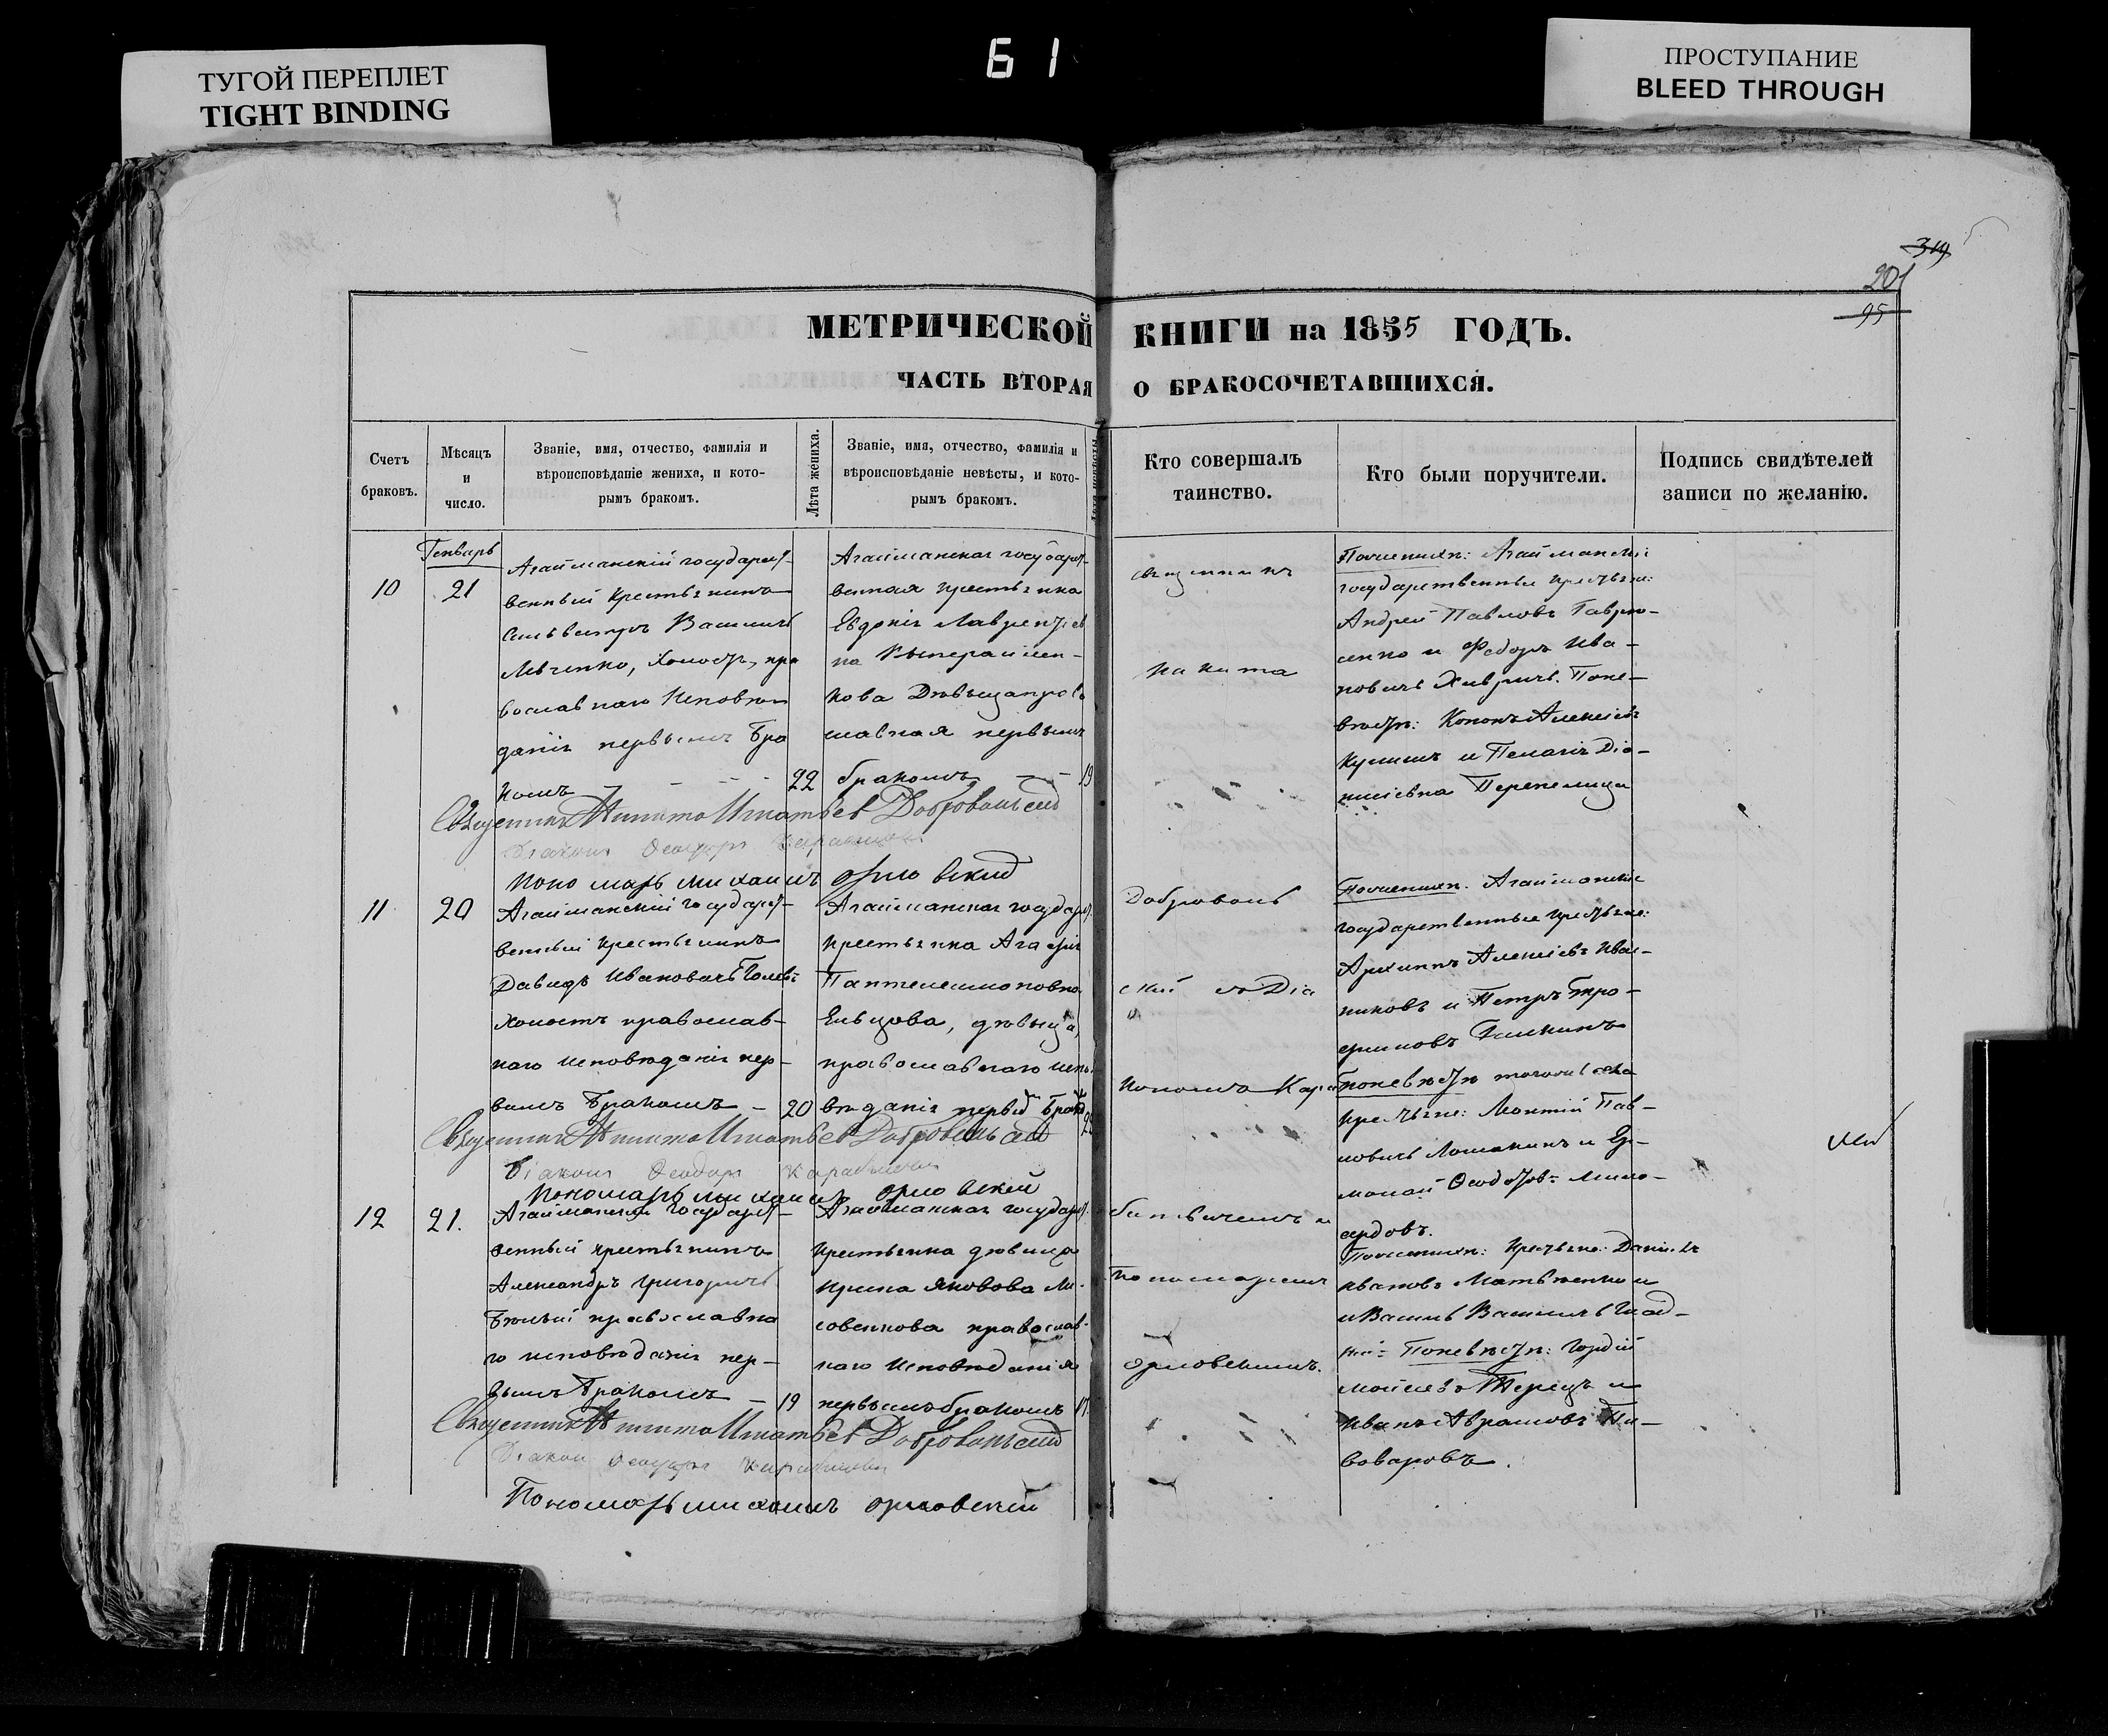 ТУГОЙ ПЕРЕПЛЕТ
TIGHT BINDING
61
ПРОСТУПАНИЕ
BLEED THROUGH
201
95
МЕТРИЧЕСКОЙ КНИГИ на 1855 ГОДЪ.
ЧАСТЬ ВТОРАЯ О БРАКОСОЧЕТАВШИХСЯ.
Счетъ
браковъ.
Мѣсяцъ
и
число.
Званіе, имя, отчество, фамилія и
вѣроисповѣданіе жениха, и кото-
рымъ бракомъ.
Лѣта жениха.
Званіе, имя, отчество, фамилія и
вѣроисповѣданіе невѣсты, и кото-
рымъ бракомъ.
Лѣта невѣсты.
Кто совершалъ
таинство.
Кто были поручители.
Подпись свидѣтелей
записи по желанію.
Генварь
10
21
Агайманскій государст-
венный крестьянинъ
Василичъ
Левченко, холостъ, пра
вославнаго исповѣ
данія первымъ бра
комъ
22
Агайманская государст-
венная крестьянка
Евдокія Лаврентіев
на
кова Дѣвица право
славная первымъ
бракомъ
19
Священникъ
Никита
По женихѣ: Агайманскіе
государственные крестьяне:
Андрей Павловъ Гаври-
ленко и Федоръ Ива-
новичъ По не-
вѣстѣ: Кононъ Алексіевъ
и Пелагія Діо-
нисіевна Перепелица
Священникъ Никита Игнатьев Добровольский
Діаконъ Феодоръ
Пономарь Михаилъ Орловский
11
20
Агайманскій государст-
венный крестьянинъ
Давидъ Ивановичъ
холостъ православ-
наго исповѣданія пер-
вымъ бракомъ
20
Агайманская государст.
крестьянка Агафія
Пантелеимоновна
Ельцова, дѣвица,
православнаго испо
вѣданія первый бракъ
Доброволь
ский съ Діа
кономъ Кара
По женихѣ. Агайманскіе
государственные крестьяне:
Архипъ Алексіевъ Ива-
никовъ и Петръ Тро-
фимовъ Галкинъ
По невѣстѣ
крестьяне: Леонтій Пав-
ловичъ Ломакинъ и Ер-
молай Феодоровъ Мило-
сердовъ.
Священникъ Никита Игнатьев Добровольский
Діаконъ Феодоръ
Пономарь Михаилъ Орловский
12
21.
Агайманскій государст-
венный крестьянинъ
Александръ Григоричъ
Бѣлый православна
го исповѣданія пер-
вымъ бракомъ
19
Агайманская государст.
крестьянка дѣвица
Ирина Яковова Ли-
совенкова православ-
наго исповѣданія
первымъ бракомъ
17.
и
Пономаремъ
Орловскимъ.
По женихѣ: крестьяне: Даніилъ
Ивановъ Матвѣенко и
Василь Василичъ Глад-
кій. По невѣстѣ: Гордій
Моисеевъ Терецъ и
Иванъ Аврамовъ Пи-
воваровъ.
Священникъ Никита Игнатьев Добровольский
Діаконъ Феодоръ
Пономарь Михаилъ Орловский